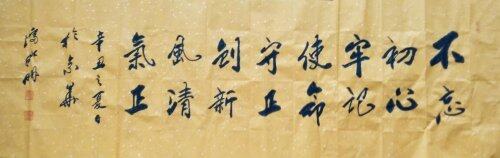 不忘
初心
牢记
使命
守正
创新
風清
氣正
辛丑之夏日
於京華